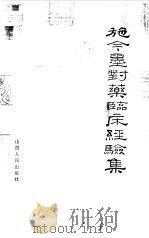 施今墨對藥臨床經驗集
山西人民出版社